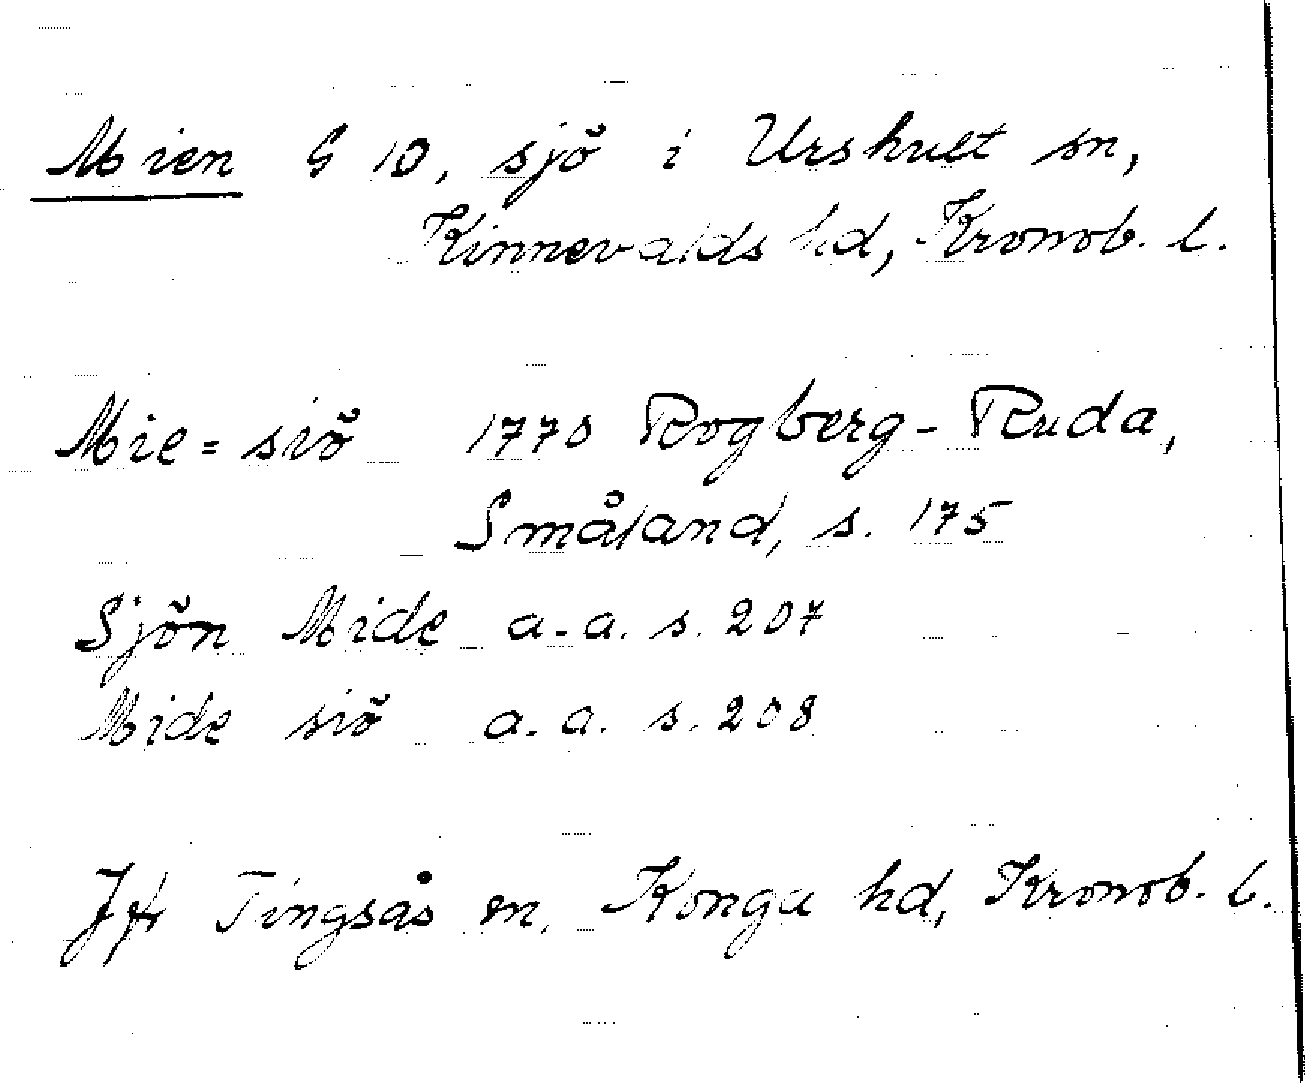 Mien G 10, sjö i Urshult sn,
Kinnevalds hd, Kronob. l.
Mie=siö 1770 Rogberg-Ruda,
Småland, s. 175
Sjön Mide a.a. s. 207
Mide siö a.a. s. 208
Jfr Tingsås sn, Konga hd, Kronob. l.